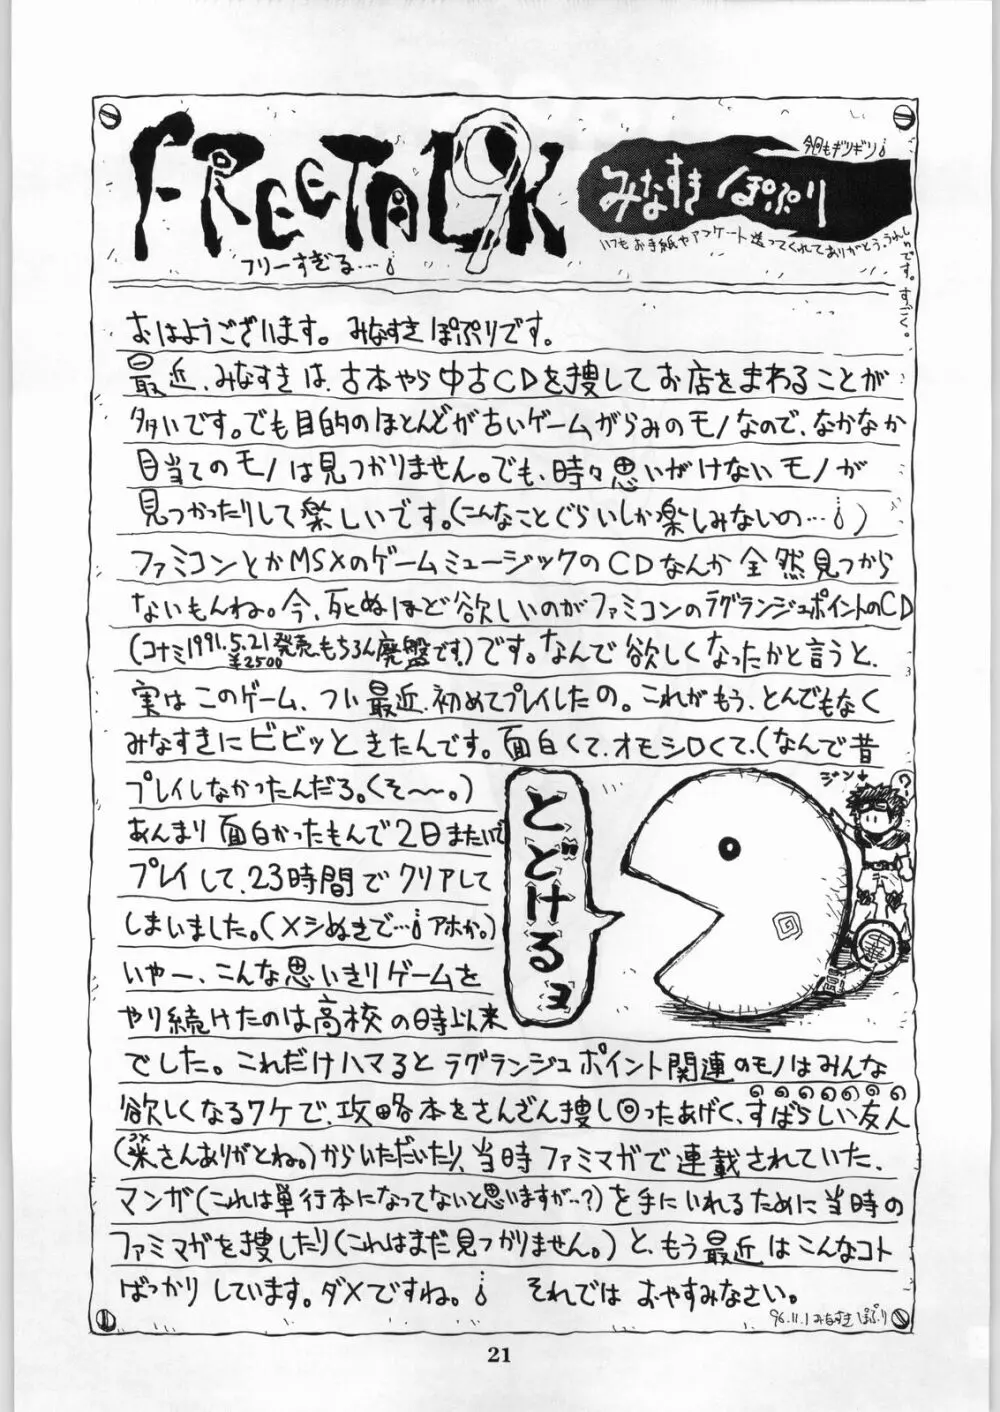 FREETALK 9
フリーすぎる…
今回もギリギリ
みなすき ぽぷり
いつもお手紙やアンケート送ってくれてありがとう。うれしいです。すごく。
おはようございます。みなすき ぽぷりです。
最近、みなすきは、古本やら中古CDを捜してお店をまわることが
多いです。でも目的のほとんどが古いゲームがらみのモノなので、なかなか
目当てのモノは見つかりません。でも、時々思いがけないモノが
見つかったりして楽しいです。(こんなことぐらいしか楽しみないの…)
ファミコンとかMSXのゲームミュージックのCDなんか全然見つから
ないもんね。今、死ぬほど欲しいのがファミコンのラグランジュポイントのCD
(コナミ1991.5.21発売。もちろん廃盤です。)です。なんで欲しくなったかと言うと、
¥2500
実はこのゲーム、つい最近、初めてプレイしたの。これがもう、とんでもなく
みなすきにビビッときたんです。面白くて、オモシロくて、(なんで昔
プレイしなかったんだろ。くそ〜。)
あんまり面白かったもんで2日またいで
プレイして、23時間でクリアして
しまいました。(メシぬきで…アホか。)
いやー、こんな思いきりゲームを
やり続けたのは高校の時以来
とどけるヨ
ジン↓
?
でした。これだけハマるとラグランジュポイント関連のモノはみんな
欲しくなるワケで、攻略本をさんざん捜し回ったあげく、すばらしい友人
(米さんありがとね。)からいただいたり、当時ファミマガで連載されていた、
コメ
マンガ(これは単行本になってないと思いますが…?)を手にいれるために当時の
ファミマガを捜したり(これはまだ見つかりません。)と、もう最近はこんなコト
ばっかりしています。ダメですね。 それでは おやすみなさい。
'96.11.1 みなすき ぽぷり
21